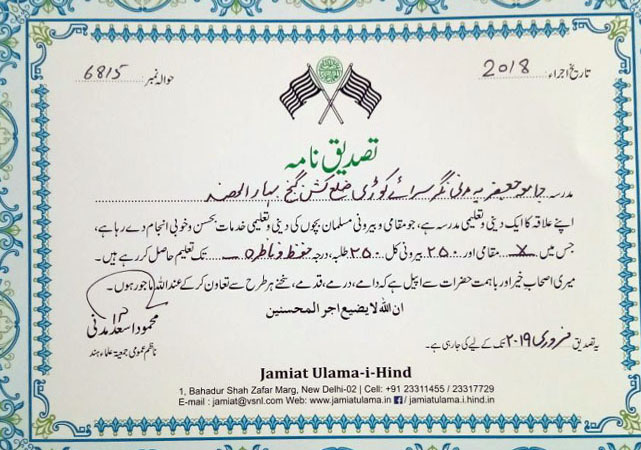 تاریخ اجراء 2018 حوالہ نمبر 6815
تصدیق نامہ
مدرسہ جامعہ جعفریہ مدنی نگر سرائے کوڑی ضلع کشن گنج بہار الھند
اپنے علاقہ کا ایک دینی و تعلیمی مدرسہ ہے، جو مقامی و بیرونی مسلمان بچوں کی دینی و تعلیمی خدمات بحسن و خوبی انجام دے رہا ہے،
جس میں X مقامی اور ۲۵۰ بیرونی کل ۲۵۰ طلبہ، درجہ حفظ و ناظرہ تک تعلیم حاصل کر رہے ہیں۔
میری اصحاب خیر اور باہمت حضرات سے اپیل ہے کہ دامے، درمے، قدمے، سخنے ہر طرح سے تعاون کر کے عند اللہ ماجور ہوں۔
ان اللہ لا یضیع اجر المحسنین
محمود اسعد مدنی
ناظم عمومی جمعیۃ علماء ہند
یہ تصدیق فروری ۲۰۱۹ تک کے لیے کی جا رہی ہے۔
Jamiat Ulama-i-Hind
1, Bahadur Shah Zafar Marg, New Delhi-02 | Cell: +91 23311455 / 23317729
E-mail : jamiat@vsnl.com Web: www.jamiatulama.in / jamiatulama.i.hind.in